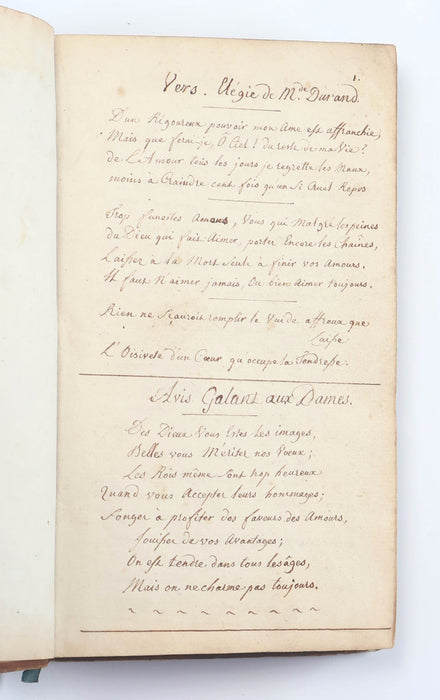 1.
Vers. Elégie de M.de Durand.
D'un Rigoureux pouvoir mon Ame est affranchie,
Mais que ferai-je, Ô Ciel! du reste de ma Vie?
de L'Amour tous les jours je regrette les Maux,
moins à Craindre cent fois qu'un Si Cruel Repos
Trop funestes Amans, Vous qui Malgré les peines
du Dieu qui fait aimer, portez Encore les Chaînes,
Laissez à la Mort Seule à finir vos Amours.
Il faut N'aimer jamais, Ou bien aimer toujours.
Rien ne Sçauroit remplir le Vuide affreux que
Laisse
L'Oisiveté d'un Cœur qu'occupe la Tendresse.
Avis Galant aux Dames.
Des Dieux Vous Estes Les images,
Belles vous Mériter nos Voeux;
Les Rois même Sont trop heureux
Quand vous Accepter leurs hommages;
Songer à profiter des faveurs des Amours,
Jouisser de vos Avantages;
On est tendre dans tous les âges,
Mais on ne charme pas toujours.